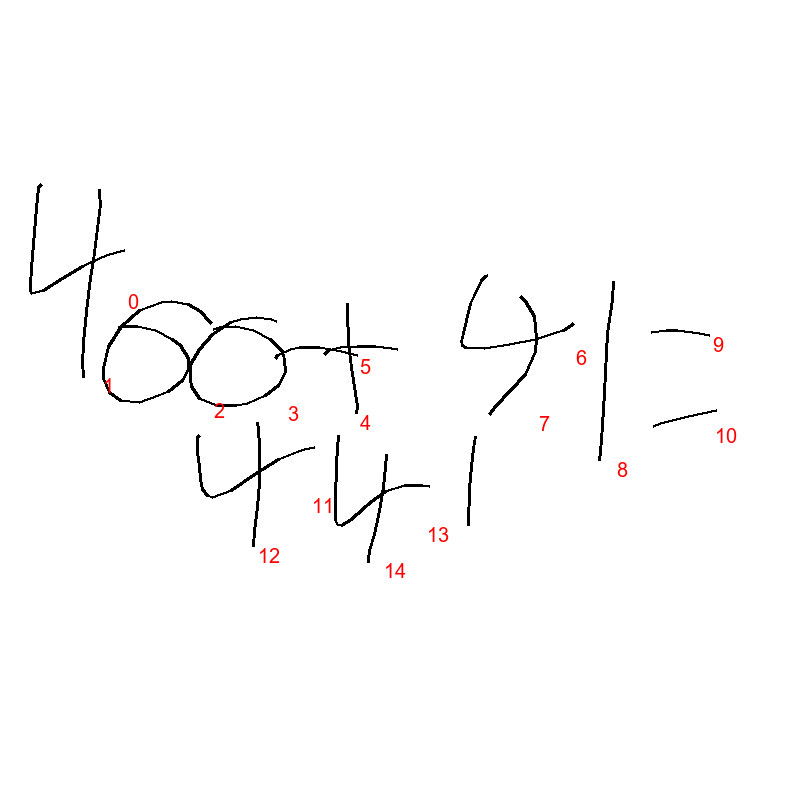 400 + 41 =
441
0
1
2
3
4
5
6
7
8
9
10
11
12
13
14